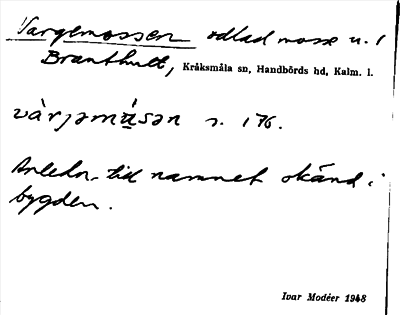 Vargemossen odlad mosse u. /
Branthult, Kråksmåla sn, Handbörds hd, Kalm. l.
vàrjəmɷ̀sən s. 176.
Anledn. till namnet okänd i
bygden.
Ivar Modéer 1948